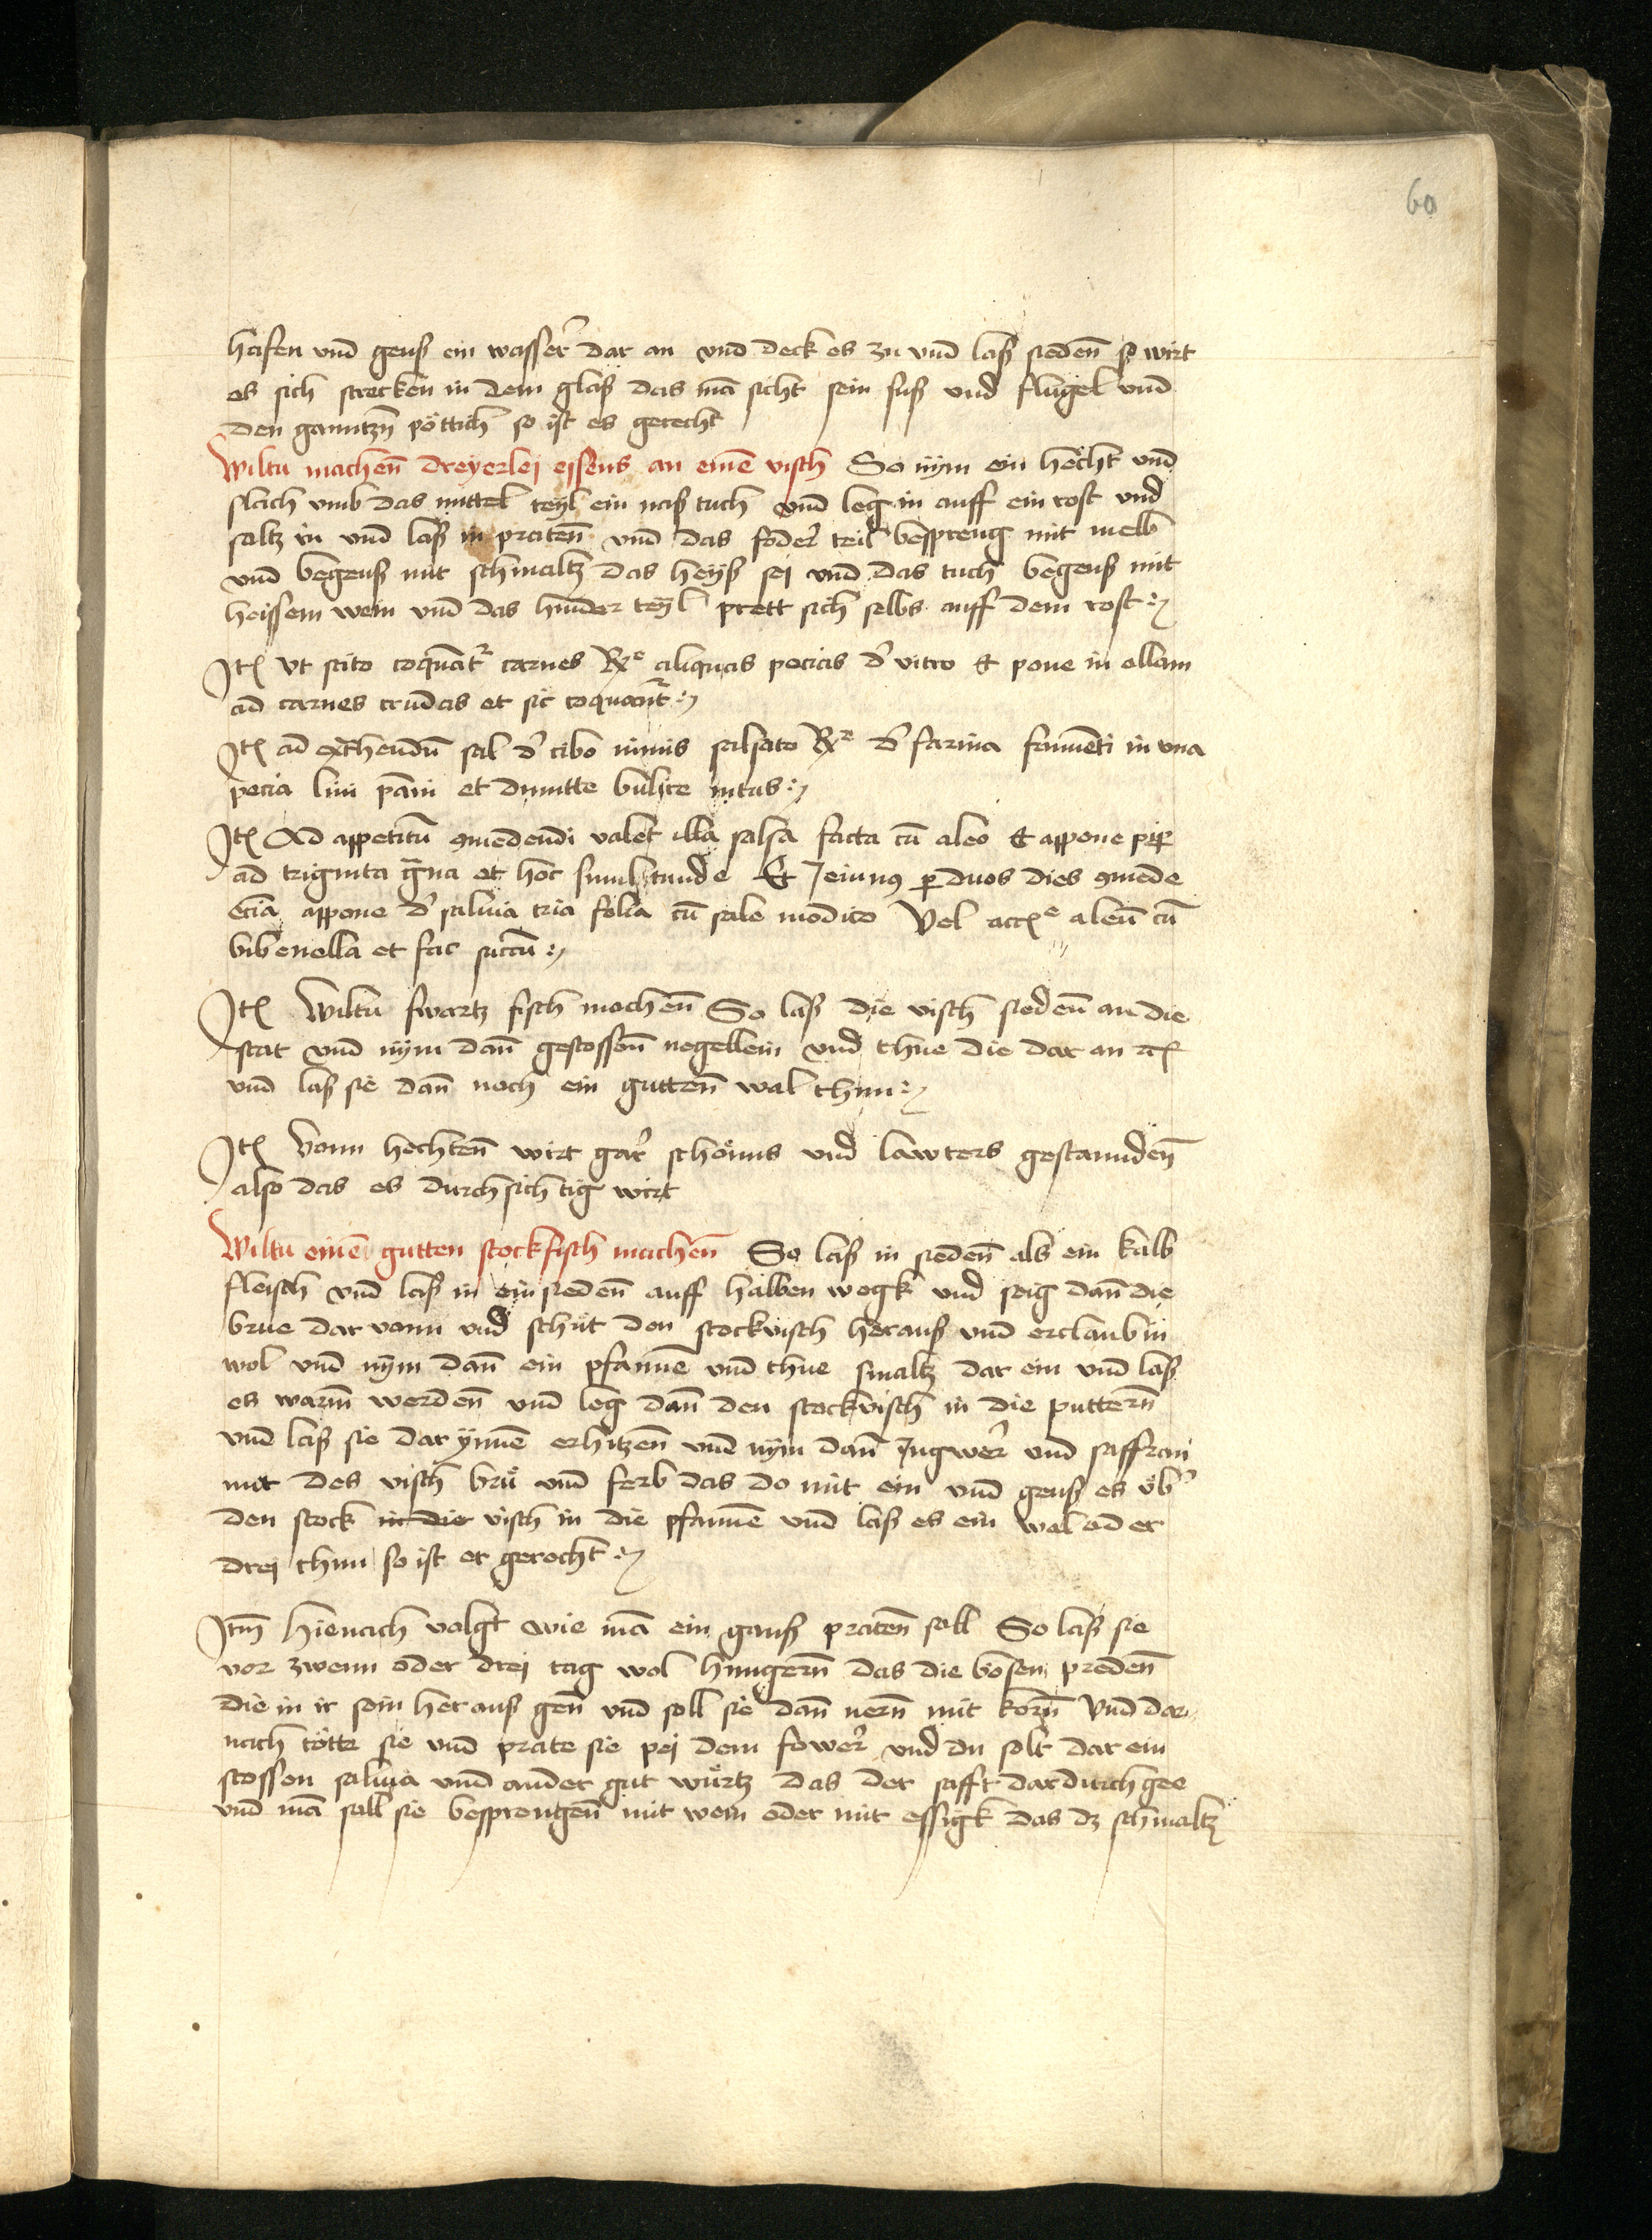 60
hafen vnd geuß ein wasser dar an vnd deck es zu vnd laß siedenn so wirt
es sich strecken in dem glaß das mā sicht sein fuß vnd flugel vnd
den ganntzn̄ pöttich so ist es gerecht
Wiltu machenn dreyerlej essens an einē visch So nÿm ein hecht vnd
slach vmb das mittel teÿl ein naß tuch vnd leg in auff ein rost vnd
saltz in vnd laß in pratenn vnd das foder teil bespreng mit melb
vnd begeuß mit schmaltz das heÿß sej vnd das tuch begeuß mit
heissem wein vnd das hinder teÿl prett sich selbs auff dem rost
Itē vt scito coquāt᷑ carnes Rx aliquas pecias d' vitro et pone in ollam
ad carnes crudas et sic coquant᷑
Itē ad ext᷑hendū sal d' cibo nimis salsato Rx d' farina frumēti in vna
pecia lini pāni et dimitte bulire intus
Itē Ad appetitū ꝯmedendi valet illa salsa facta cū aleo et appone pip
ad triginta gna et hoc simul tunde Et Jeiunꝰ ꝑ duos dies ꝯmede
eciā appone d' saluia tria folia cū sale modico Vel accē aleū cū
bibenella et fac succū
Itē Wiltu swartz fisch machenn So laß die visch siedenn an die
stat vnd nÿm dan̄ gestossenn negellein vnd thue die dar an
vnd laß sie dan̄ noch ein guttenn wal thun
Itē Vonn hechtenn wirt gar schönns vnd lawters gestanndenn
also das es durchsichtig wirt
Wiltu einē gutten stockfisch machenn So laß in siedenn als ein kalb
fleisch vnd laß in ein siedenn auff halben wegk vnd seig dan̄ die
brue dar vonn vnd schüt den stockvisch herauß vnd erclaub in
wol vnd nÿm dan̄ ein pfannē vnd thue smaltz dar ein vnd laß
es warm werdenn vnd leg dan̄ den stockvisch in die putternn
vnd laß sie dar ÿnnē erhitzenn vnd nÿm dan̄ Jngwer vnd saffran
mit des visch brü vnd ferb das do mit ein vnd geuß es üb'
den stock in die visch in die pfannē vnd laß es ein wal oder
drej thun so ist er gerecht
Itm̄ Hienach volgt wie mā ein ganß pratenn soll So laß sie
vor zwenn oder drej tag wol hungernn das die bösen predenn
die in ir sein herauß genn vnd soll sie dan̄ nernn mit kornn Vnd dar
nach tötte sie vnd prate sie pej dem fewer vnd du solt dar ein
stossen saluia vnd ander gut würtz das der safft dardurch gee
vnd mā sall sie besprengenn mit wein oder mit essigk das dz schmaltz